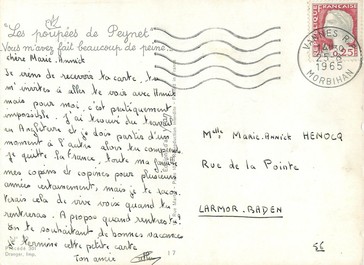 "Les poupées de Peynet"
Vous m'avez fait beaucoup de peine..
chère Marie. Annick
Je viens de recevoir ta carte, tu
m'invites à aller te voir avec Annick
mais pour moi, c'est pratiquement
impossible. J'ai trouvé du travail
en Angleterre et je dois partir d'un
moment à l'autre alors tu comprends
je quitte la France, toute ma famille
mes copains et copines pour plusieurs
années certainement, mais je te
cela de vive voix quand tu
rentreras. A propos quand rentres-tu?
En te souhaitant de bonnes vacances
je termine cette petite carte
Ton amie
Draeger, Imp.
17
VANNES
1965
MORBIHAN
FRANÇAISE
0,25
Melle Marie-Annick HENOCQ
Rue de la Pointe
LARMOR-BADEN
56